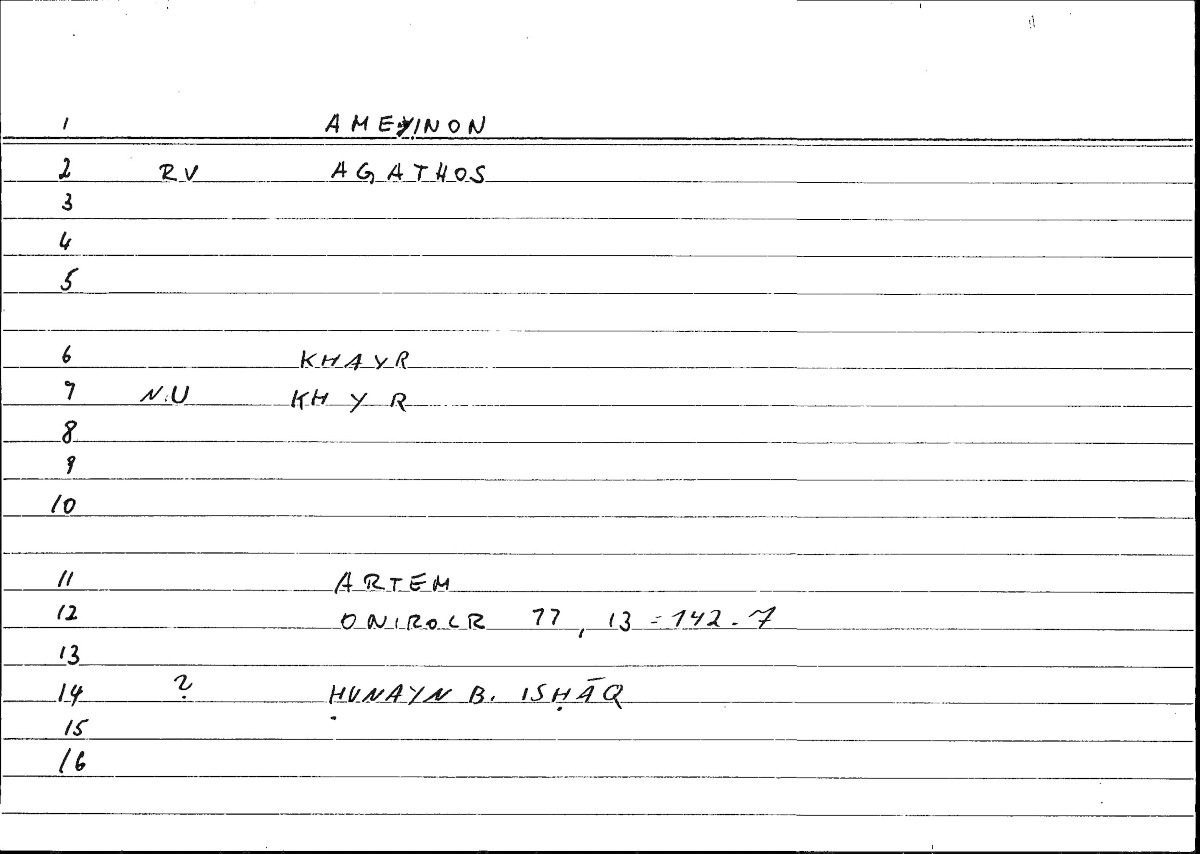 1 AMEYINON
2 RV AGATHOS
3
4
5
6 KHAYR
7 N.U KH Y R
8
9
10
11 ARTEM
12 ONIROCR 77, 13 = 142.7
13
14 ? ḤUNAYN B. ISḤĀQ
15
16